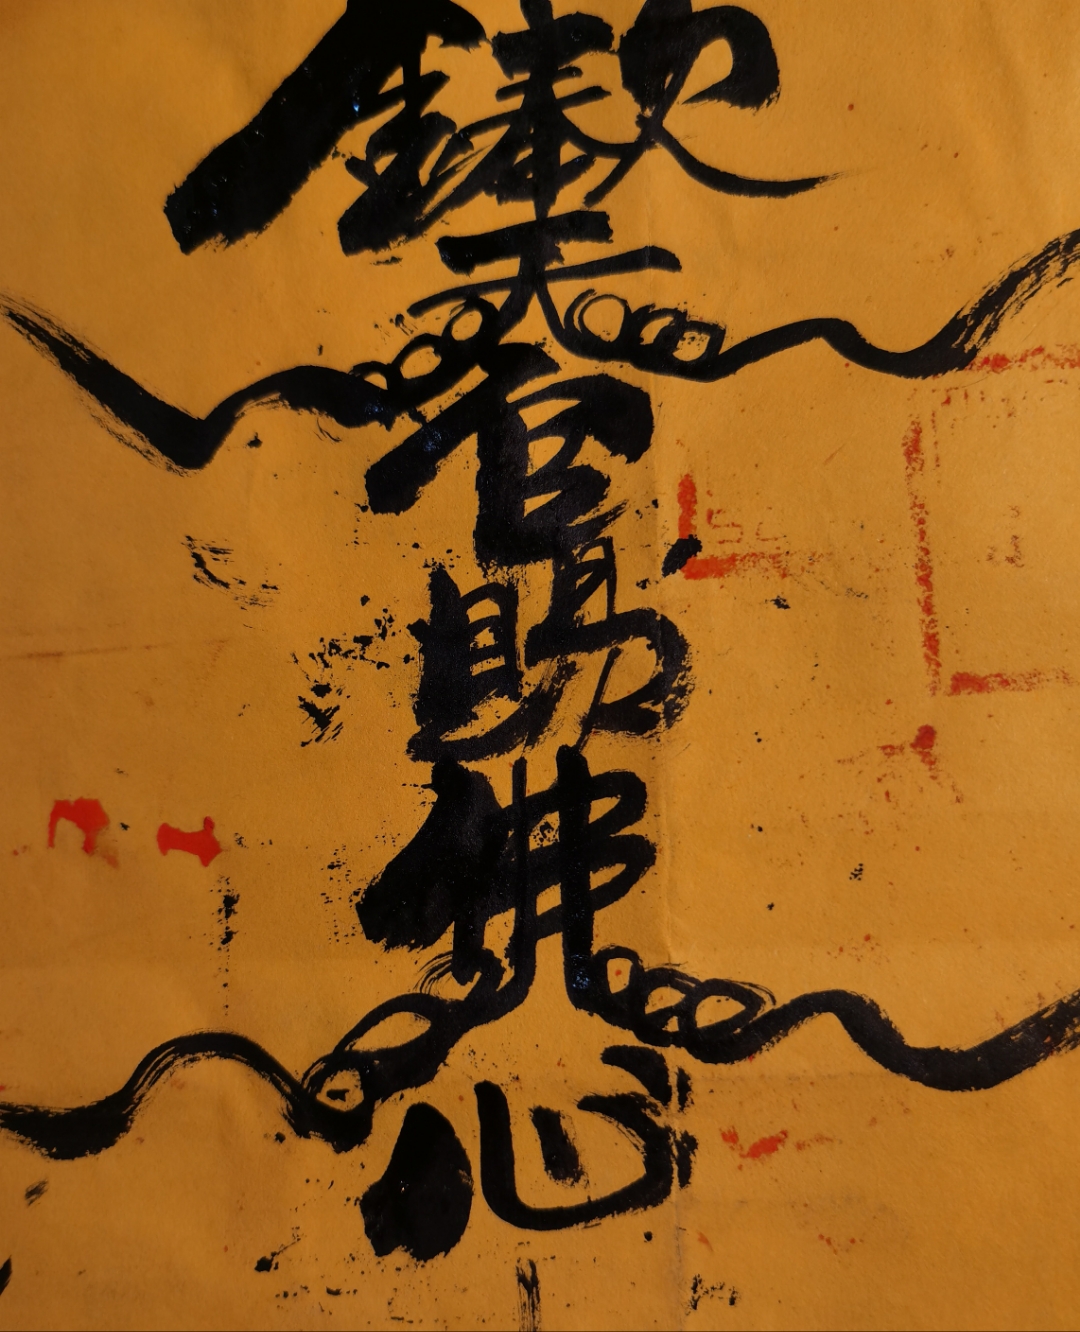 欽奉天官賜佛心